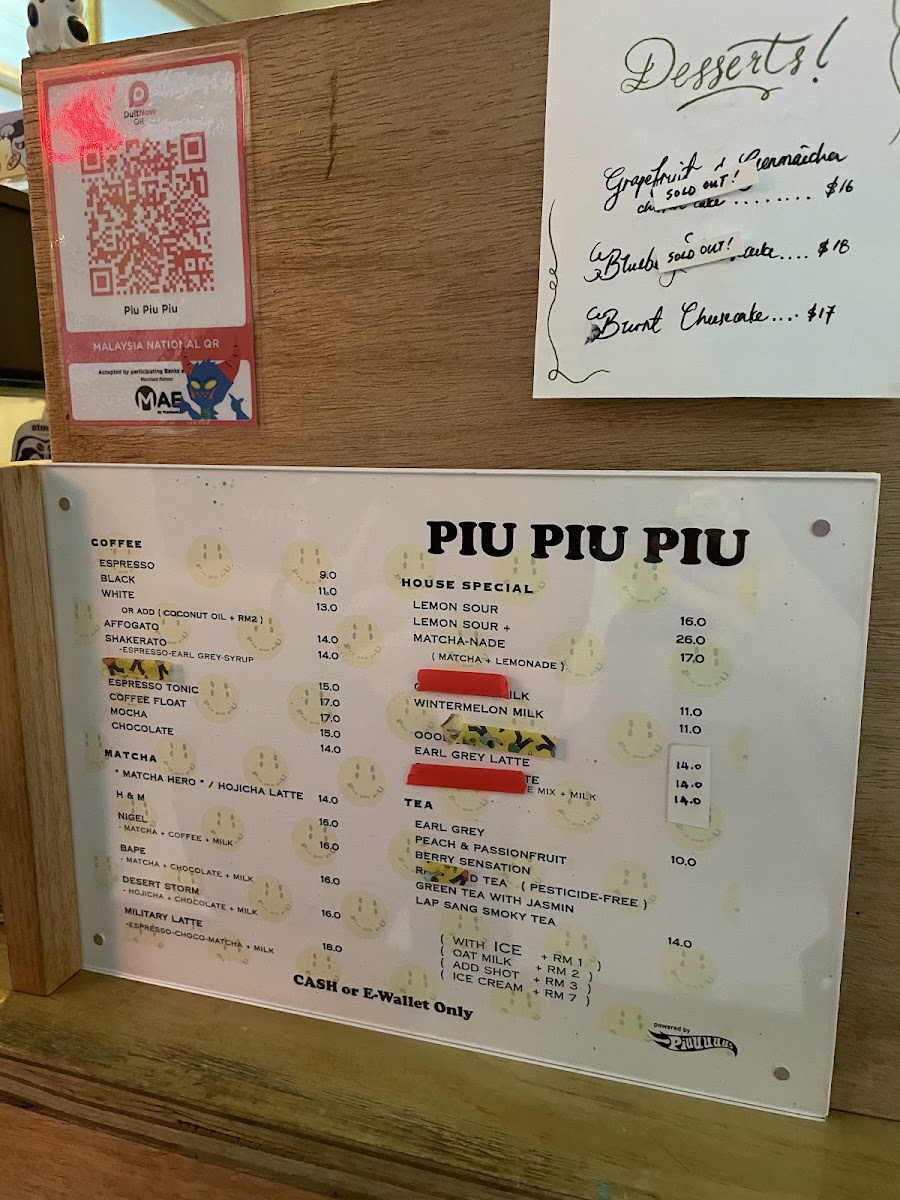 DuitNow
QR
Piu Piu Piu
MALAYSIA NATIONAL QR
Accepted by participating Banks
MAE
Desserts!
Grapefruit
SOLD OUT!
cake ......... $16
SOLD OUT!
.... $18
Burnt Cheesecake.... $17
PIU PIU PIU
COFFEE
ESPRESSO 9.0
BLACK 11.0
WHITE 13.0
OR ADD ( COCONUT OIL + RM2 )
AFFOGATO 14.0
SHAKERATO 14.0
-ESPRESSO-EARL GREY-SYRUP
ESPRESSO TONIC 15.0
COFFEE FLOAT 17.0
MOCHA 17.0
CHOCOLATE 15.0
14.0
MATCHA
" MATCHA HERO " / HOJICHA LATTE 14.0
H & M 16.0
NIGEL 16.0
- MATCHA + COFFEE + MILK
BAPE 16.0
- MATCHA + CHOCOLATE + MILK
DESERT STORM 16.0
- HOJICHA + CHOCOLATE + MILK
MILITARY LATTE 18.0
-ESPRESSO-CHOCO-MATCHA + MILK
HOUSE SPECIAL
LEMON SOUR 16.0
LEMON SOUR + 26.0
MATCHA-NADE 17.0
( MATCHA + LEMONADE )
ILK 11.0
WINTERMELON MILK 11.0
14.0
EARL GREY LATTE 14.0
TE 14.0
E MIX + MILK
TEA
EARL GREY 10.0
PEACH & PASSIONFRUIT
BERRY SENSATION
D TEA ( PESTICIDE-FREE )
GREEN TEA WITH JASMIN
LAP SANG SMOKY TEA 14.0
( WITH ICE + RM 1 )
( OAT MILK + RM 2 )
( ADD SHOT + RM 3 )
( ICE CREAM + RM 7 )
CASH or E-Wallet Only
powered by